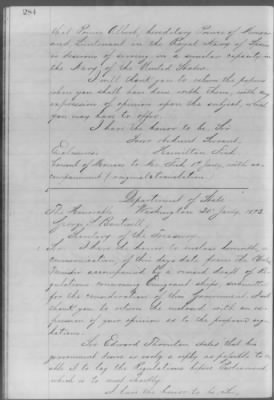 284
that Prince Albert, hereditary Prince of Monaco
and Lieutenant in the Royal Navy of
is desirous of serving in a similar capacity in
the Navy of the United States.
I will thank you to return the papers
when you shall have done with them, with any
expression of opinion upon the subject, which
you may have to offer.
I have the honor to be, Sir
Your obedient Servant,
Enclosures. Hamilton Fish
Consul of Monaco to Mr. Fish 1st Jany, with ac-
companiment / original & translation.
Department of State
The Honorable Washington 20" Jany, 1873.
George S. Boutwell,
Secretary of the Treasury.
Sir: I have the honor to enclose herewith, a
communication, of this days date from the British
Minister accompanied by a revised draft of Re-
gulations concerning Emigrant ships, submitted
for the consideration of this Government. I will
thank you to return the enclosed with an ex-
pression of your opinion as to the proposed regu-
lations.
Sir Edward Thornton states that his
government desire as early a reply as possible to en-
able it to lay the Regulations before Parliament
which is to meet shortly.
I have the honor to be, Sir,